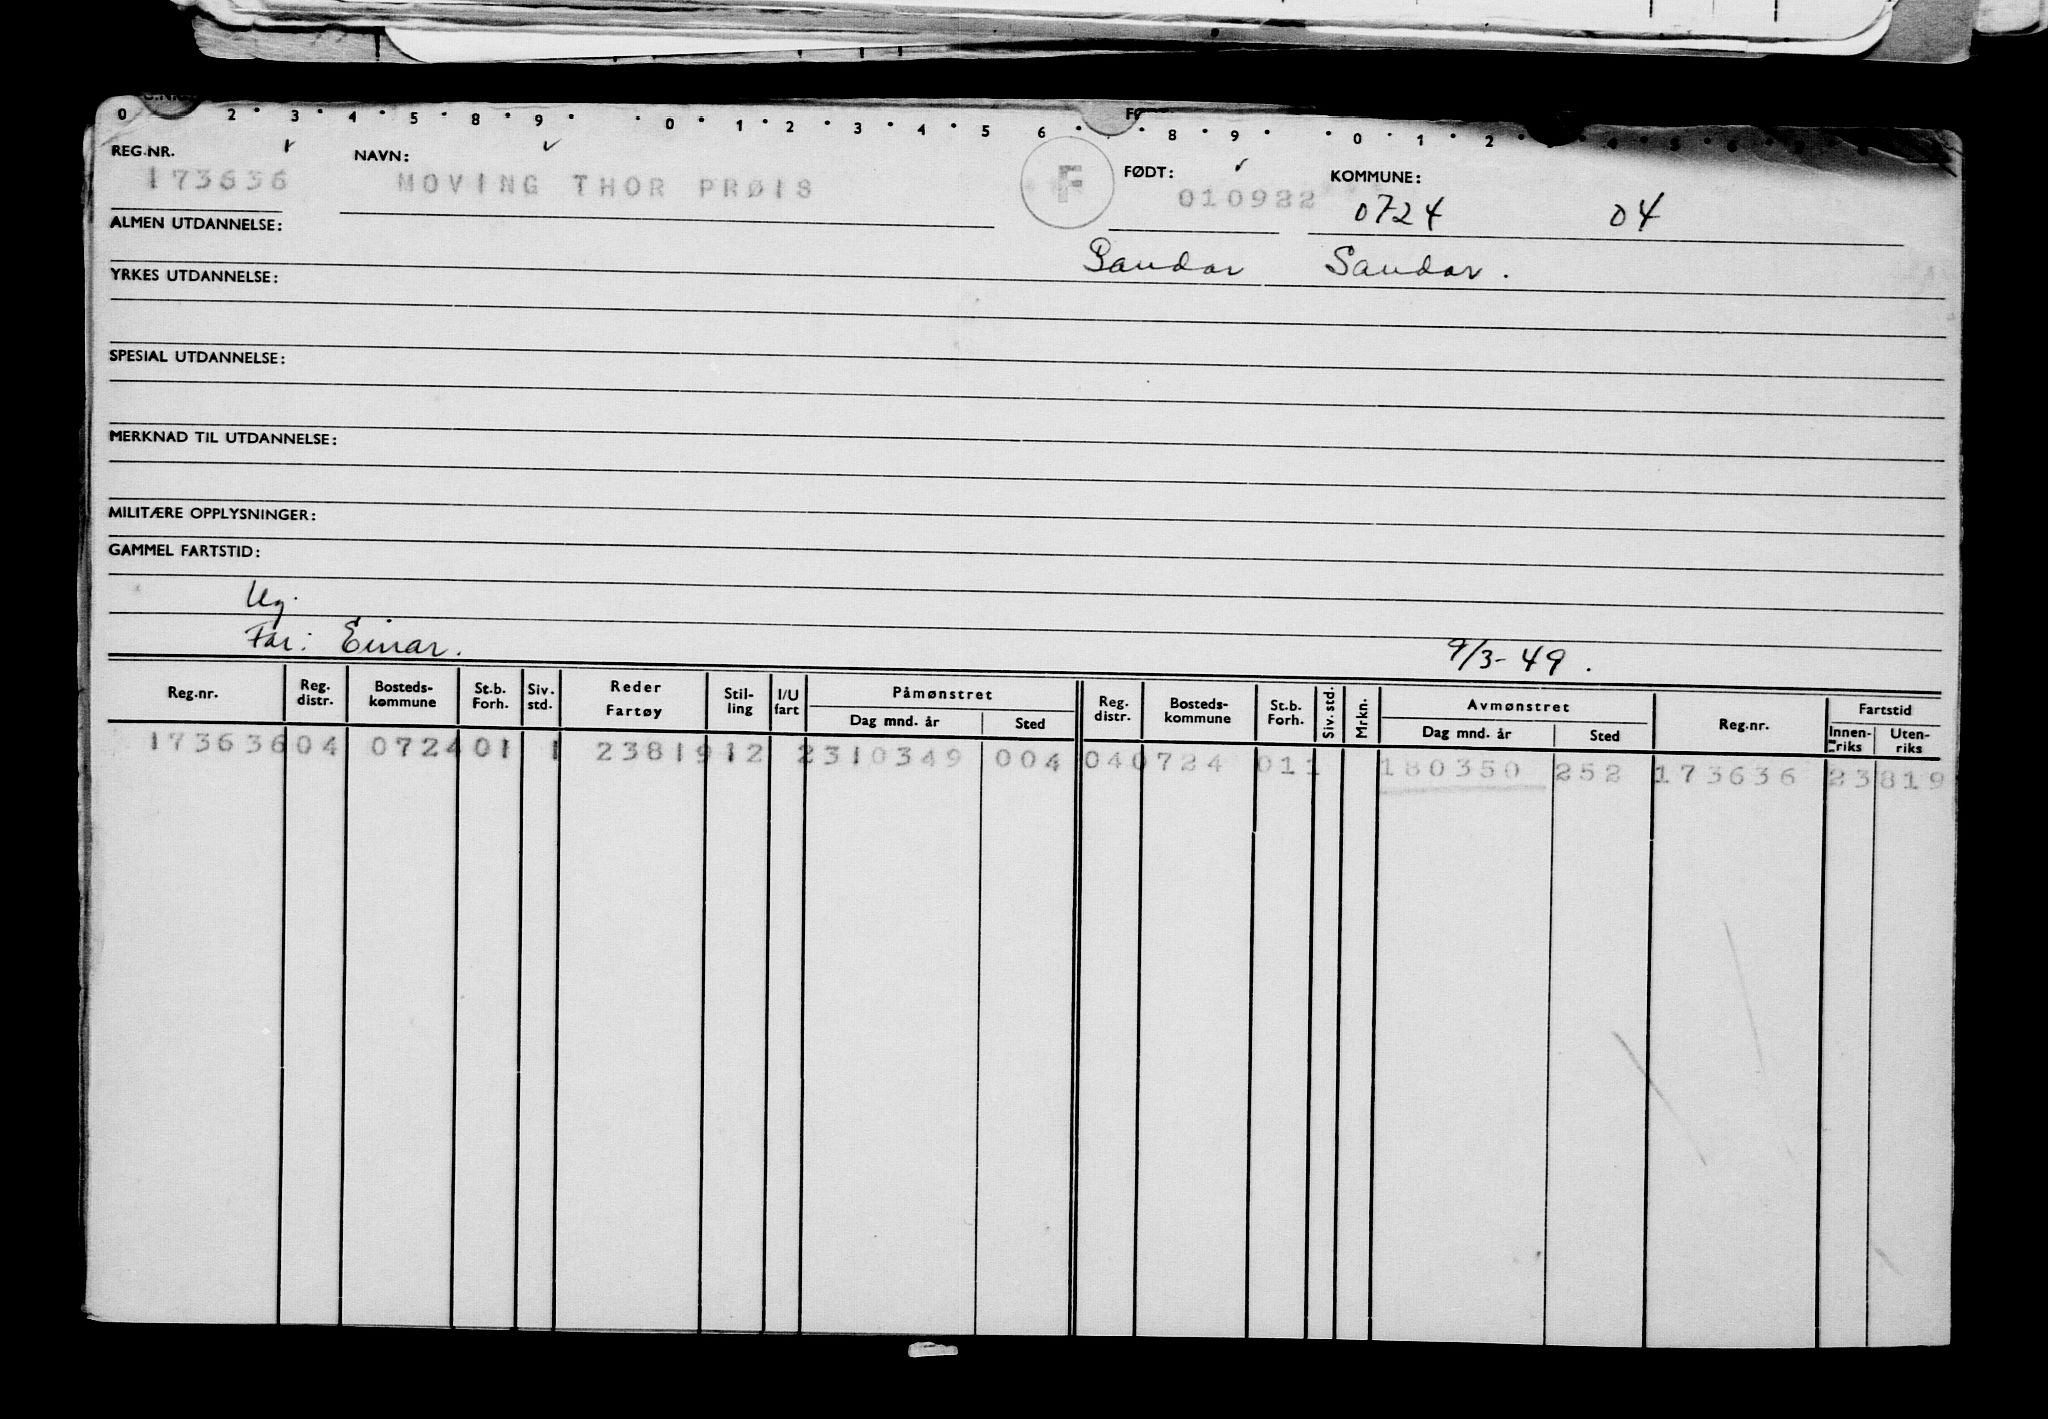 0 2 3 4 5 8 9 0 1 2 3 4 5 6 8 9 0 1 2
REG.NR. NAVN: FØDT: KOMMUNE:
173636 MOVING THOR PRØIS F 010922 0724 04
ALMEN UTDANNELSE: Sandar Sandar.
YRKES UTDANNELSE:
SPESIAL UTDANNELSE:
MERKNAD TIL UTDANNELSE:
MILITÆRE OPPLYSNINGER:
GAMMEL FARTSTID:
Ug.
Far: Einar. 9/3-49.
Reg.nr. Reg. distr. Bosteds-kommune St.b. Forh. Siv. std. Reder Fartøy Stil-ling I/U fart Påmønstret Dag mnd. år Sted Reg. distr. Bosteds-kommune St.b. Forh. Siv. std. Mrkn. Avmønstret Dag mnd. år Sted Reg.nr. Fartstid Innen-riks Uten-riks
173636 04 0724 01 1 23819 12 2 310349 004 04 0724 01 1 180350 252 173636 23819